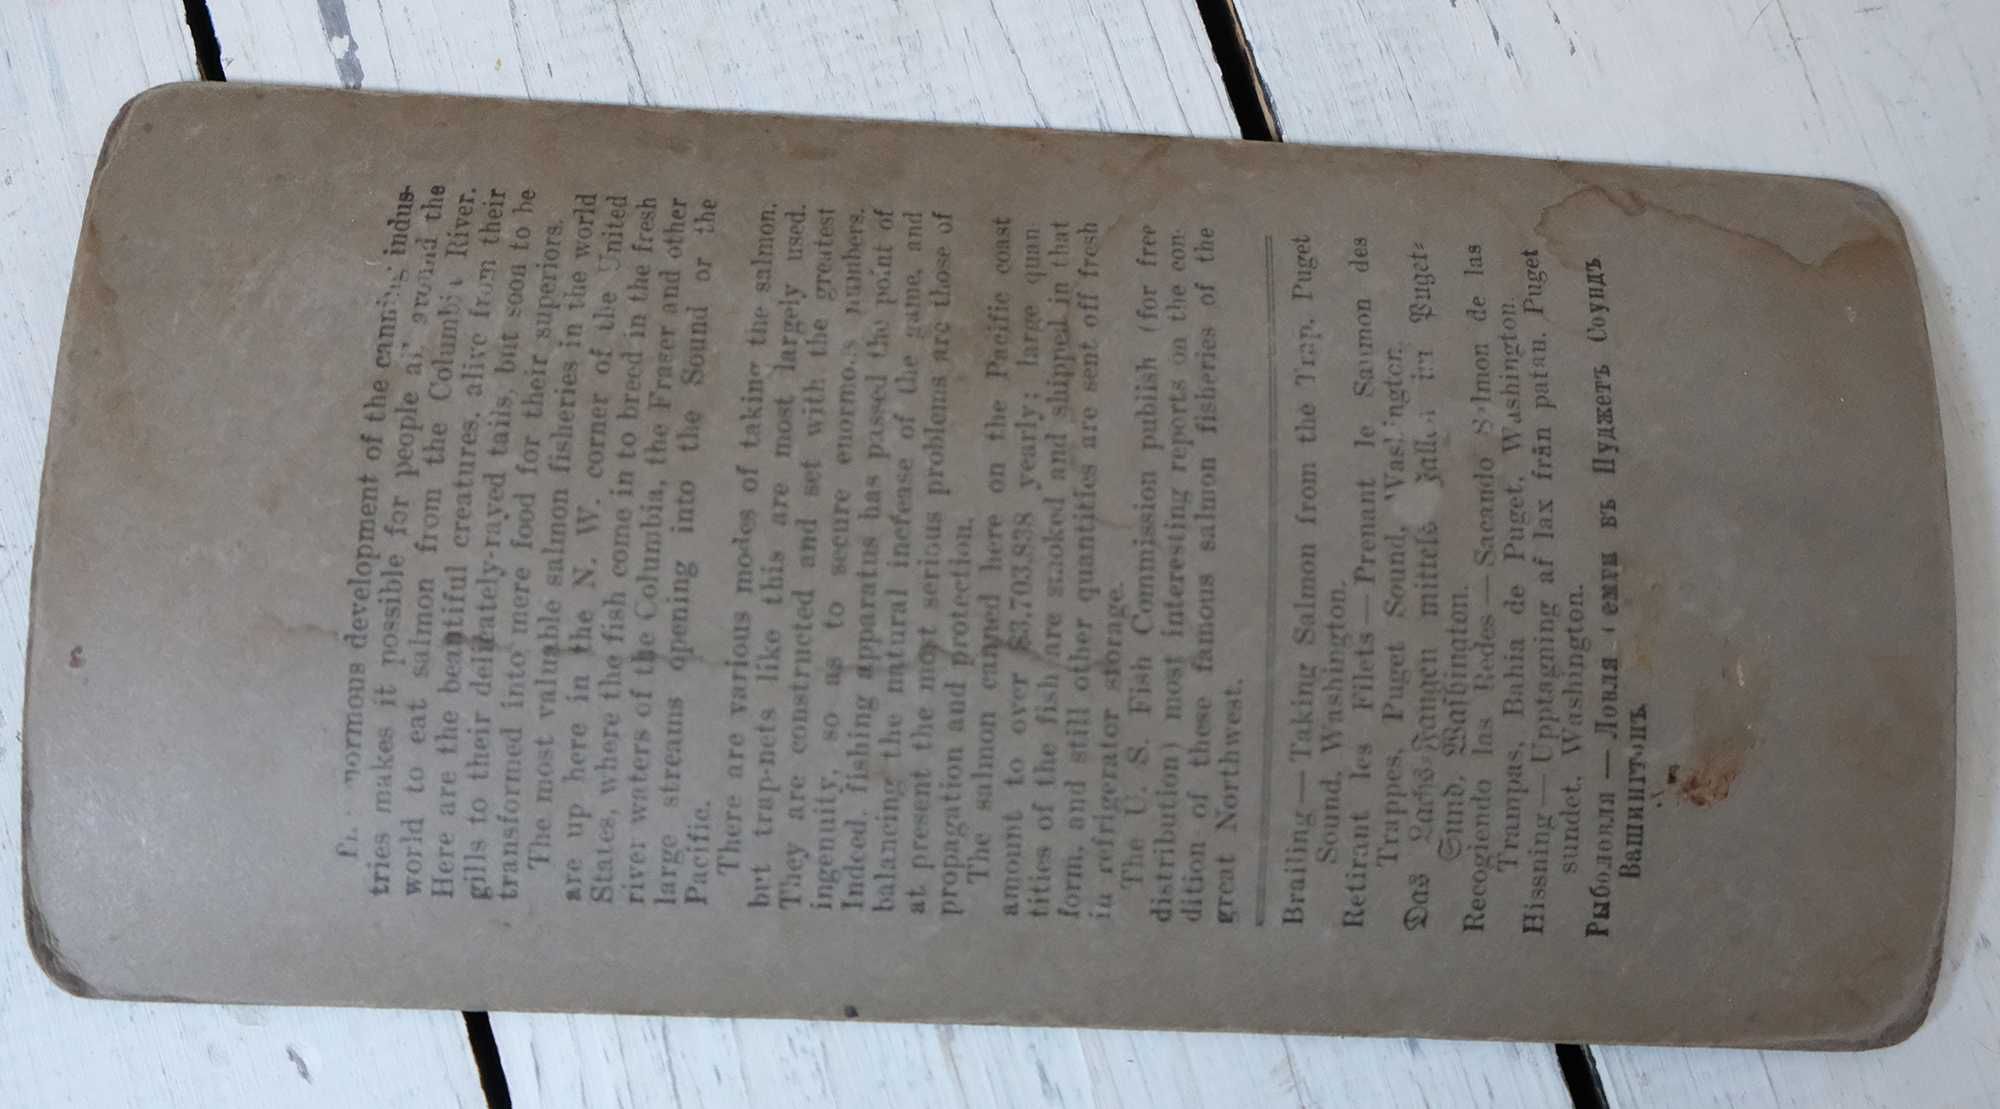 normous development of the canning indus-
tries makes it possible for people all around the
world to eat salmon from the Columbia River.
Here are the beautiful creatures, alive from their
gills to their delicately-rayed tails, but soon to be
transformed into mere food for their superiors.
The most valuable salmon fisheries in the world
are up here in the N. W. corner of the United
States, where the fish come in to breed in the fresh
river waters of the Columbia, the Fraser and other
large streams opening into the Sound or the
Pacific.
There are various modes of taking the salmon,
but trap-nets like this are most largely used.
They are constructed and set with the greatest
ingenuity, so as to secure enormous numbers.
Indeed, fishing apparatus has passed the point of
balancing the natural increase of the game, and
at present the most serious problems are those of
propagation and protection.
The salmon canned here on the Pacific coast
amount to over $3,703,838 yearly; large quan-
tities of the fish are smoked and shipped in that
form, and still other quantities are sent off fresh
in refrigerator storage.
The U. S. Fish Commission publish (for free
distribution) most interesting reports on the con-
dition of these famous salmon fisheries of the
great Northwest.
Brailing—Taking Salmon from the Trap, Puget
Sound, Washington.
Retirant les Filets—Prenant le Saumon des
Trappes, Puget Sound, Washington.
Das Lachs-Fangen mittels Fallen im Puget-
Sund, Washington.
Recogiendo las Redes—Sacando Salmon de las
Trampas, Bahia de Puget, Washington.
Hissning—Upptagning af lax från patau, Puget
sundet, Washington.
Рыболовля — Ловля семги въ Пуджетъ Соундъ
Вашингтонъ